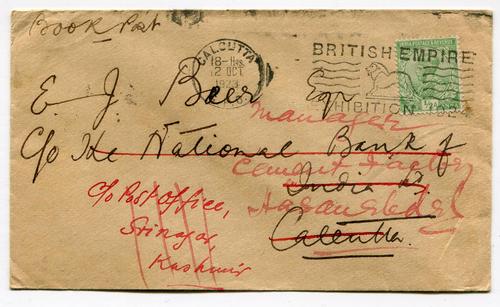 Book Post
CALCUTTA
18-Hrs
12 OCT
1923
BRITISH EMPIRE
EXHIBITION 1924
INDIA POSTAGE & REVENUE
E J Beer Esqr
Manager
C/o The National Bank of
Cement Factory
India
Calcutta.
C/o Post Office,
Srinagar,
Kashmir